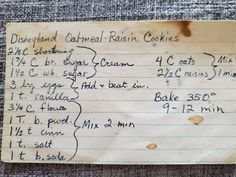 Disneyland Oatmeal-Raisin Cookies
2 1/4 C shortening
1 3/4 C br. sugar
1 1/2 C wh. sugar
Cream
3 lg eggs
1 t. vanilla
Add & beat in.
3 3/4 C flour
1 T. b. pwd.
1 1/2 t cinn
1 t. salt
1 t b. soda
Mix 2 min
4 C oats
2 1/2 C raisins
Mix
1 min
Bake 350°
9-12 min